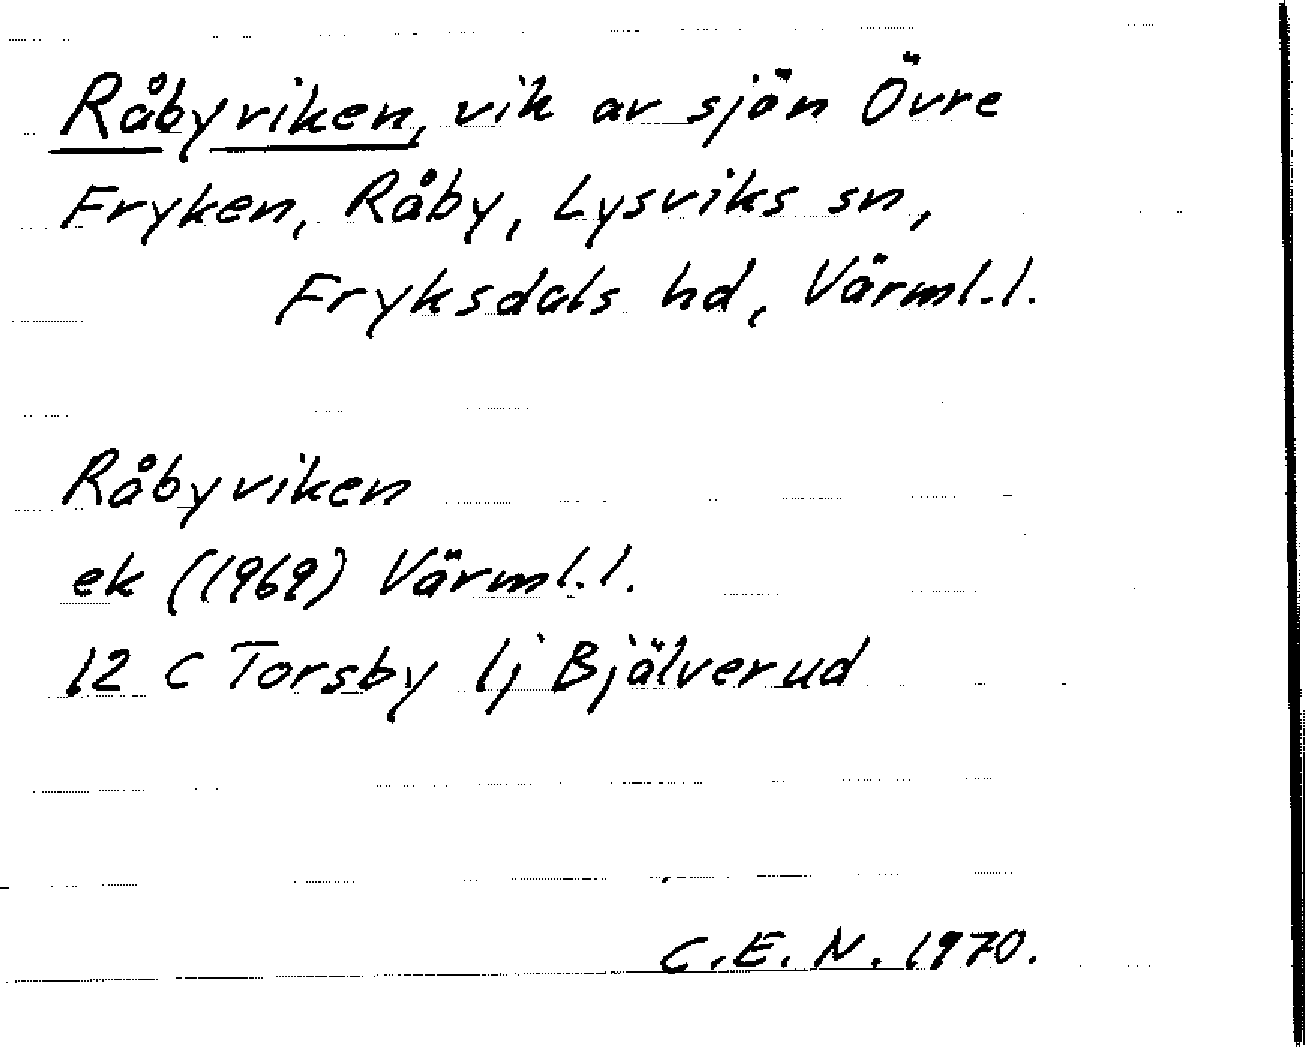 Råbyviken, vik av sjön Övre
Fryken, Råby, Lysviks sn,
Fryksdals hd, Värml.l.
Råbyviken
ek (1969) Värml.l.
12 C Torsby lj Bjälverud
C.E.N. 1970.